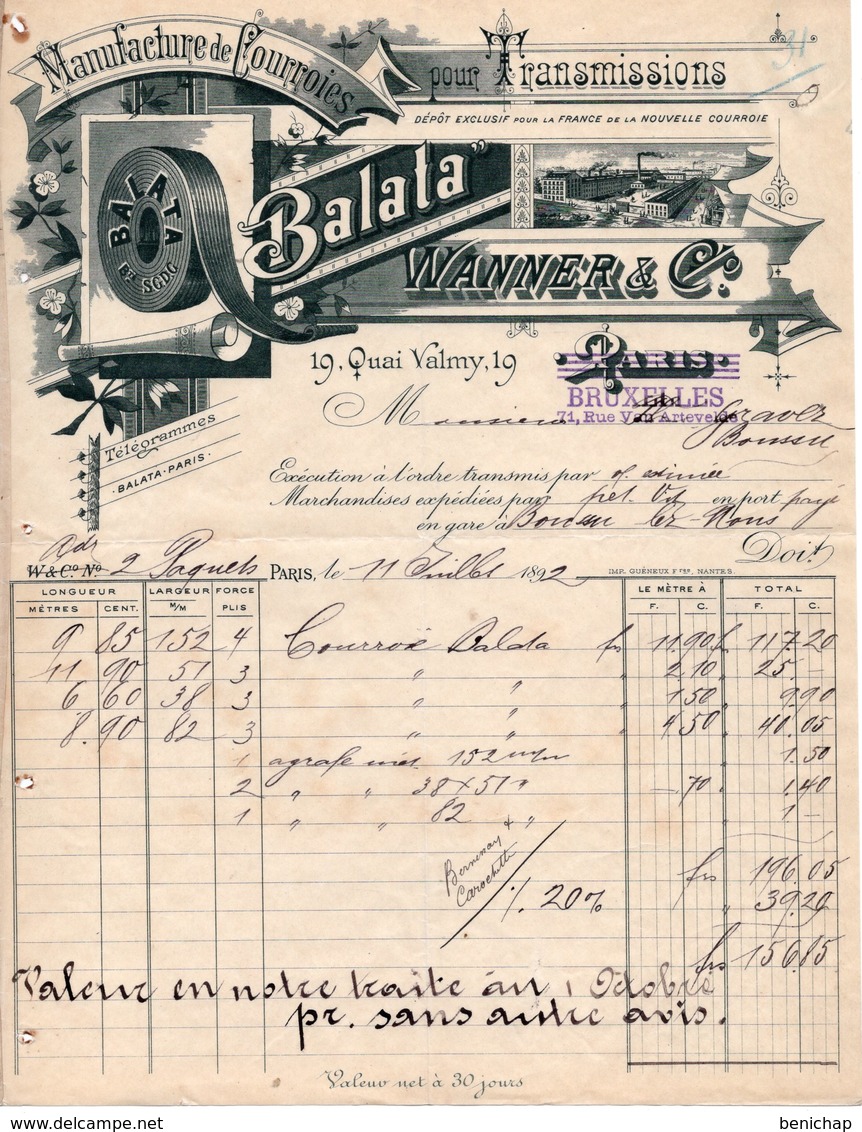 31
Manufacture de Courroies
pour Transmissions
DÉPÔT EXCLUSIF POUR LA FRANCE DE LA NOUVELLE COURROIE
BALATA
Bté SGDG
Balata"
WANNER & Co.
19, Quai Valmy, 19 PARIS.
BRUXELLES
71, Rue Van Artevelde
Monsieur
Boussu
Télégrammes
BALATA-PARIS.
Exécution à l'ordre transmis par
Marchandises expédiées par en port payé
en gare à Boussu lez-Mons
Doit
W & Co No 2 Paquets PARIS, le 11 Juillet 1892
IMP. GUÉNEUX Fres, NANTES.
LONGUEUR LARGEUR FORCE LE MÈTRE À TOTAL
MÈTRES CENT. M/M PLIS F. C. F. C.
9 85 152 4 Courroie Balata frs 11.90 frs 117.20
11 90 51 3 " " " 2.10 " 25.—
6 60 38 3 " " " 1.50 " 9.90
8.90 82 3 " " " 4.50 " 40.05
1 agrafe 152 m/m 1.50
2 " " 38 x 51 " —.70 1.40
1 " " 82 " 1 —
frs 196.05
%. 20% " 39.20
frs 156.85
Valeur en notre traite au 1 Octobre
pr. sans autre avis.
Valeur net à 30 jours
benichap